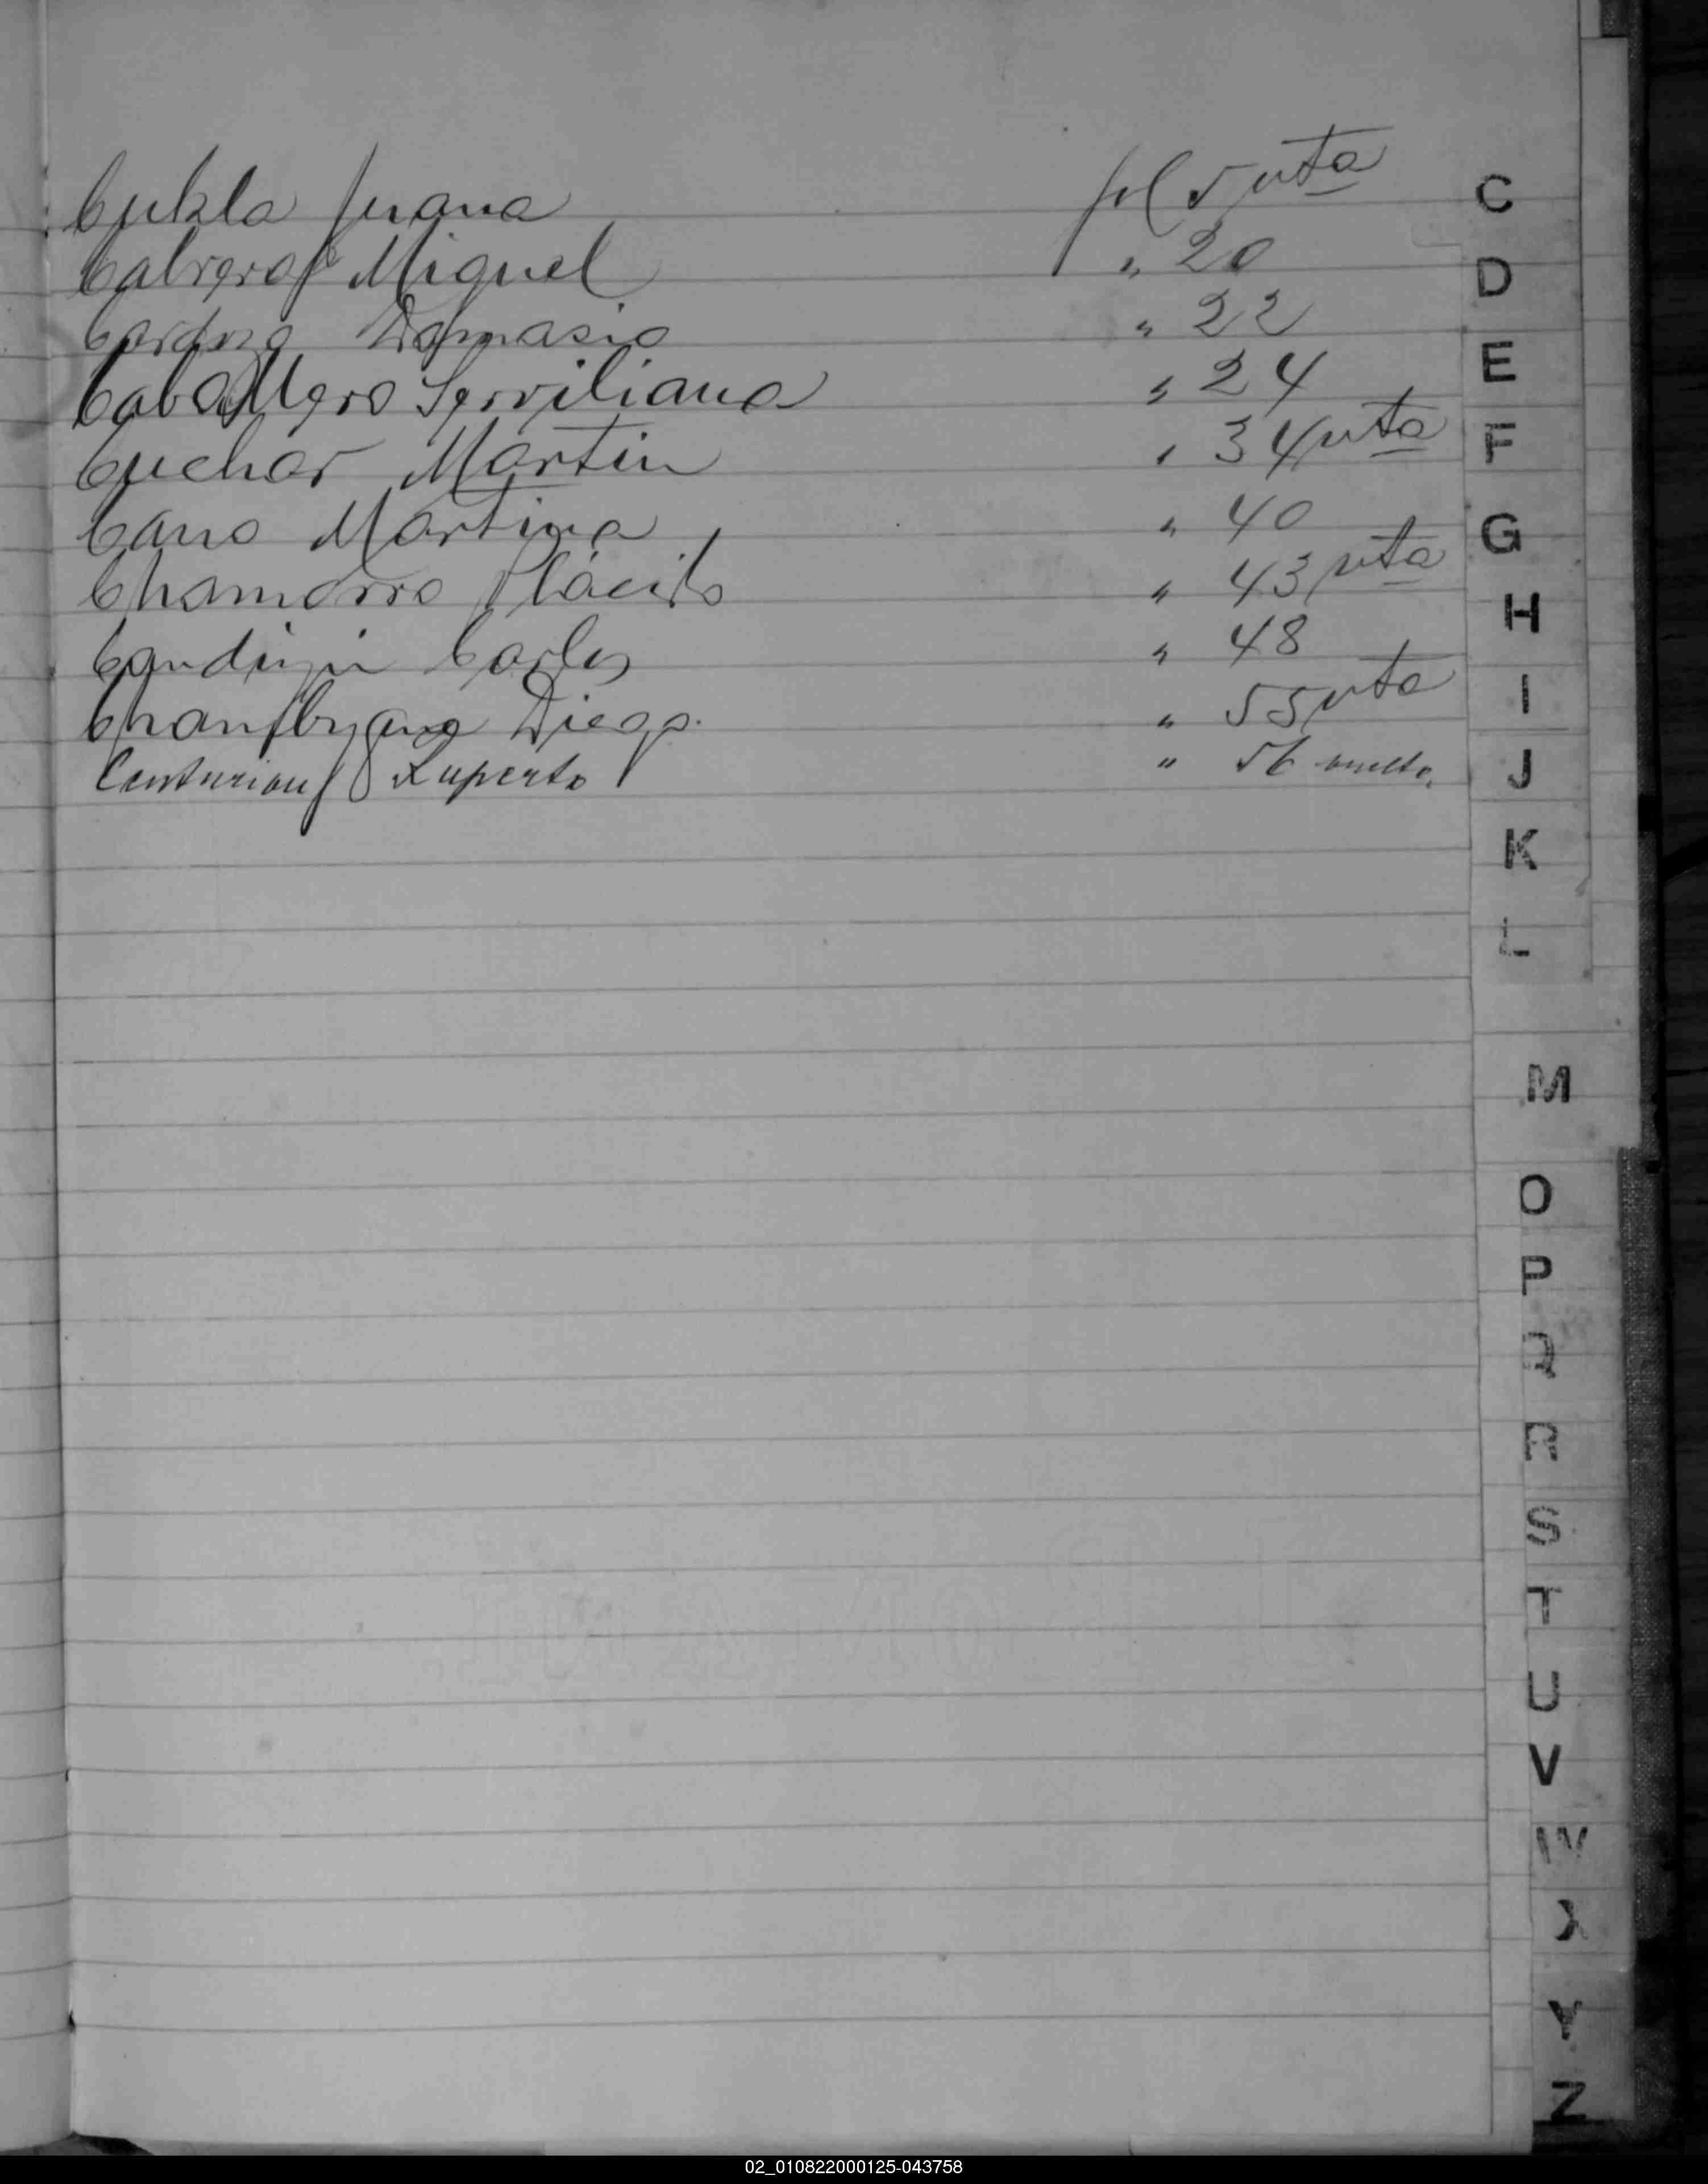 Juana fol 5 vta
Cabrera Miguel " 20
Cardozo Damasio " 22
Caballero Serviliana " 24
Cuchar Martin " 34 vta
Cano Martina " 40
Chamorro Plácido " 43 vta
Carlos " 48
Diego " 55 vta
Centurion Ruperto " 56 vuelta
C
D
E
F
G
H
I
J
K
L
M
O
P
Q
R
S
T
U
V
W
X
Y
Z
02_010822000125-043758